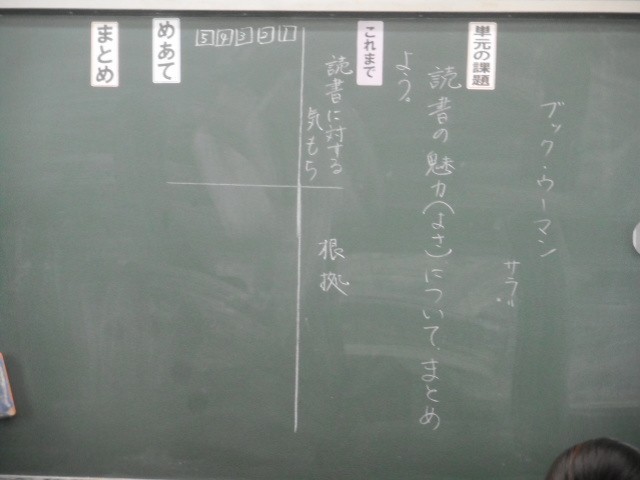 ブック・ウーマン
サラ・
単元の課題
読書の魅力(よさ)について、まとめ
よう。
これまで
読書に対する
気もち
根拠
1
2
3
4
5
めあて
まとめ